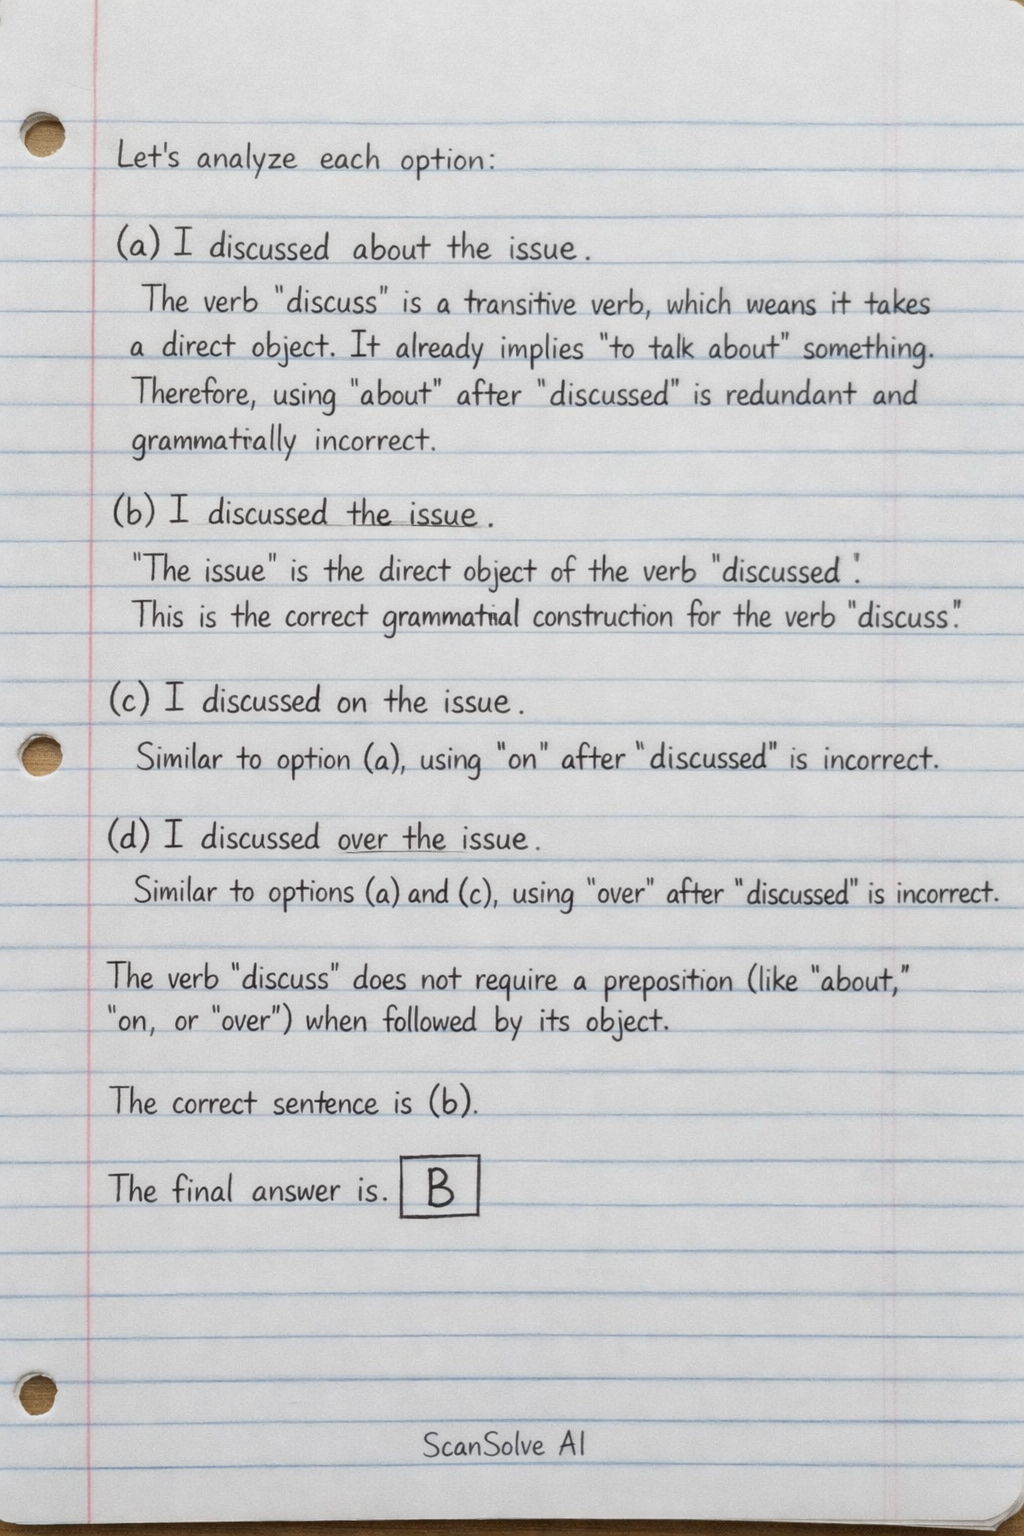 Let's analyze each option:
(a) I discussed about the issue.
The verb "discuss" is a transitive verb, which weans it takes
a direct object. It already implies "to talk about" something.
Therefore, using "about" after "discussed" is redundant and
incorrect.
(b) I discussed the issue.
"The issue" is the direct object of the verb "discussed".
This is the correct construction for the verb "discuss."
(c) I discussed on the issue.
Similar to option (a), using "on" after "discussed" is incorrect.
(d) I discussed over the issue.
Similar to options (a) and (c), using "over" after "discussed" is incorrect.
The verb "discuss" does not require a preposition (like "about,"
"on, or "over") when followed by its object.
The correct sentence is (b).
The final answer is. B
ScanSolve AI